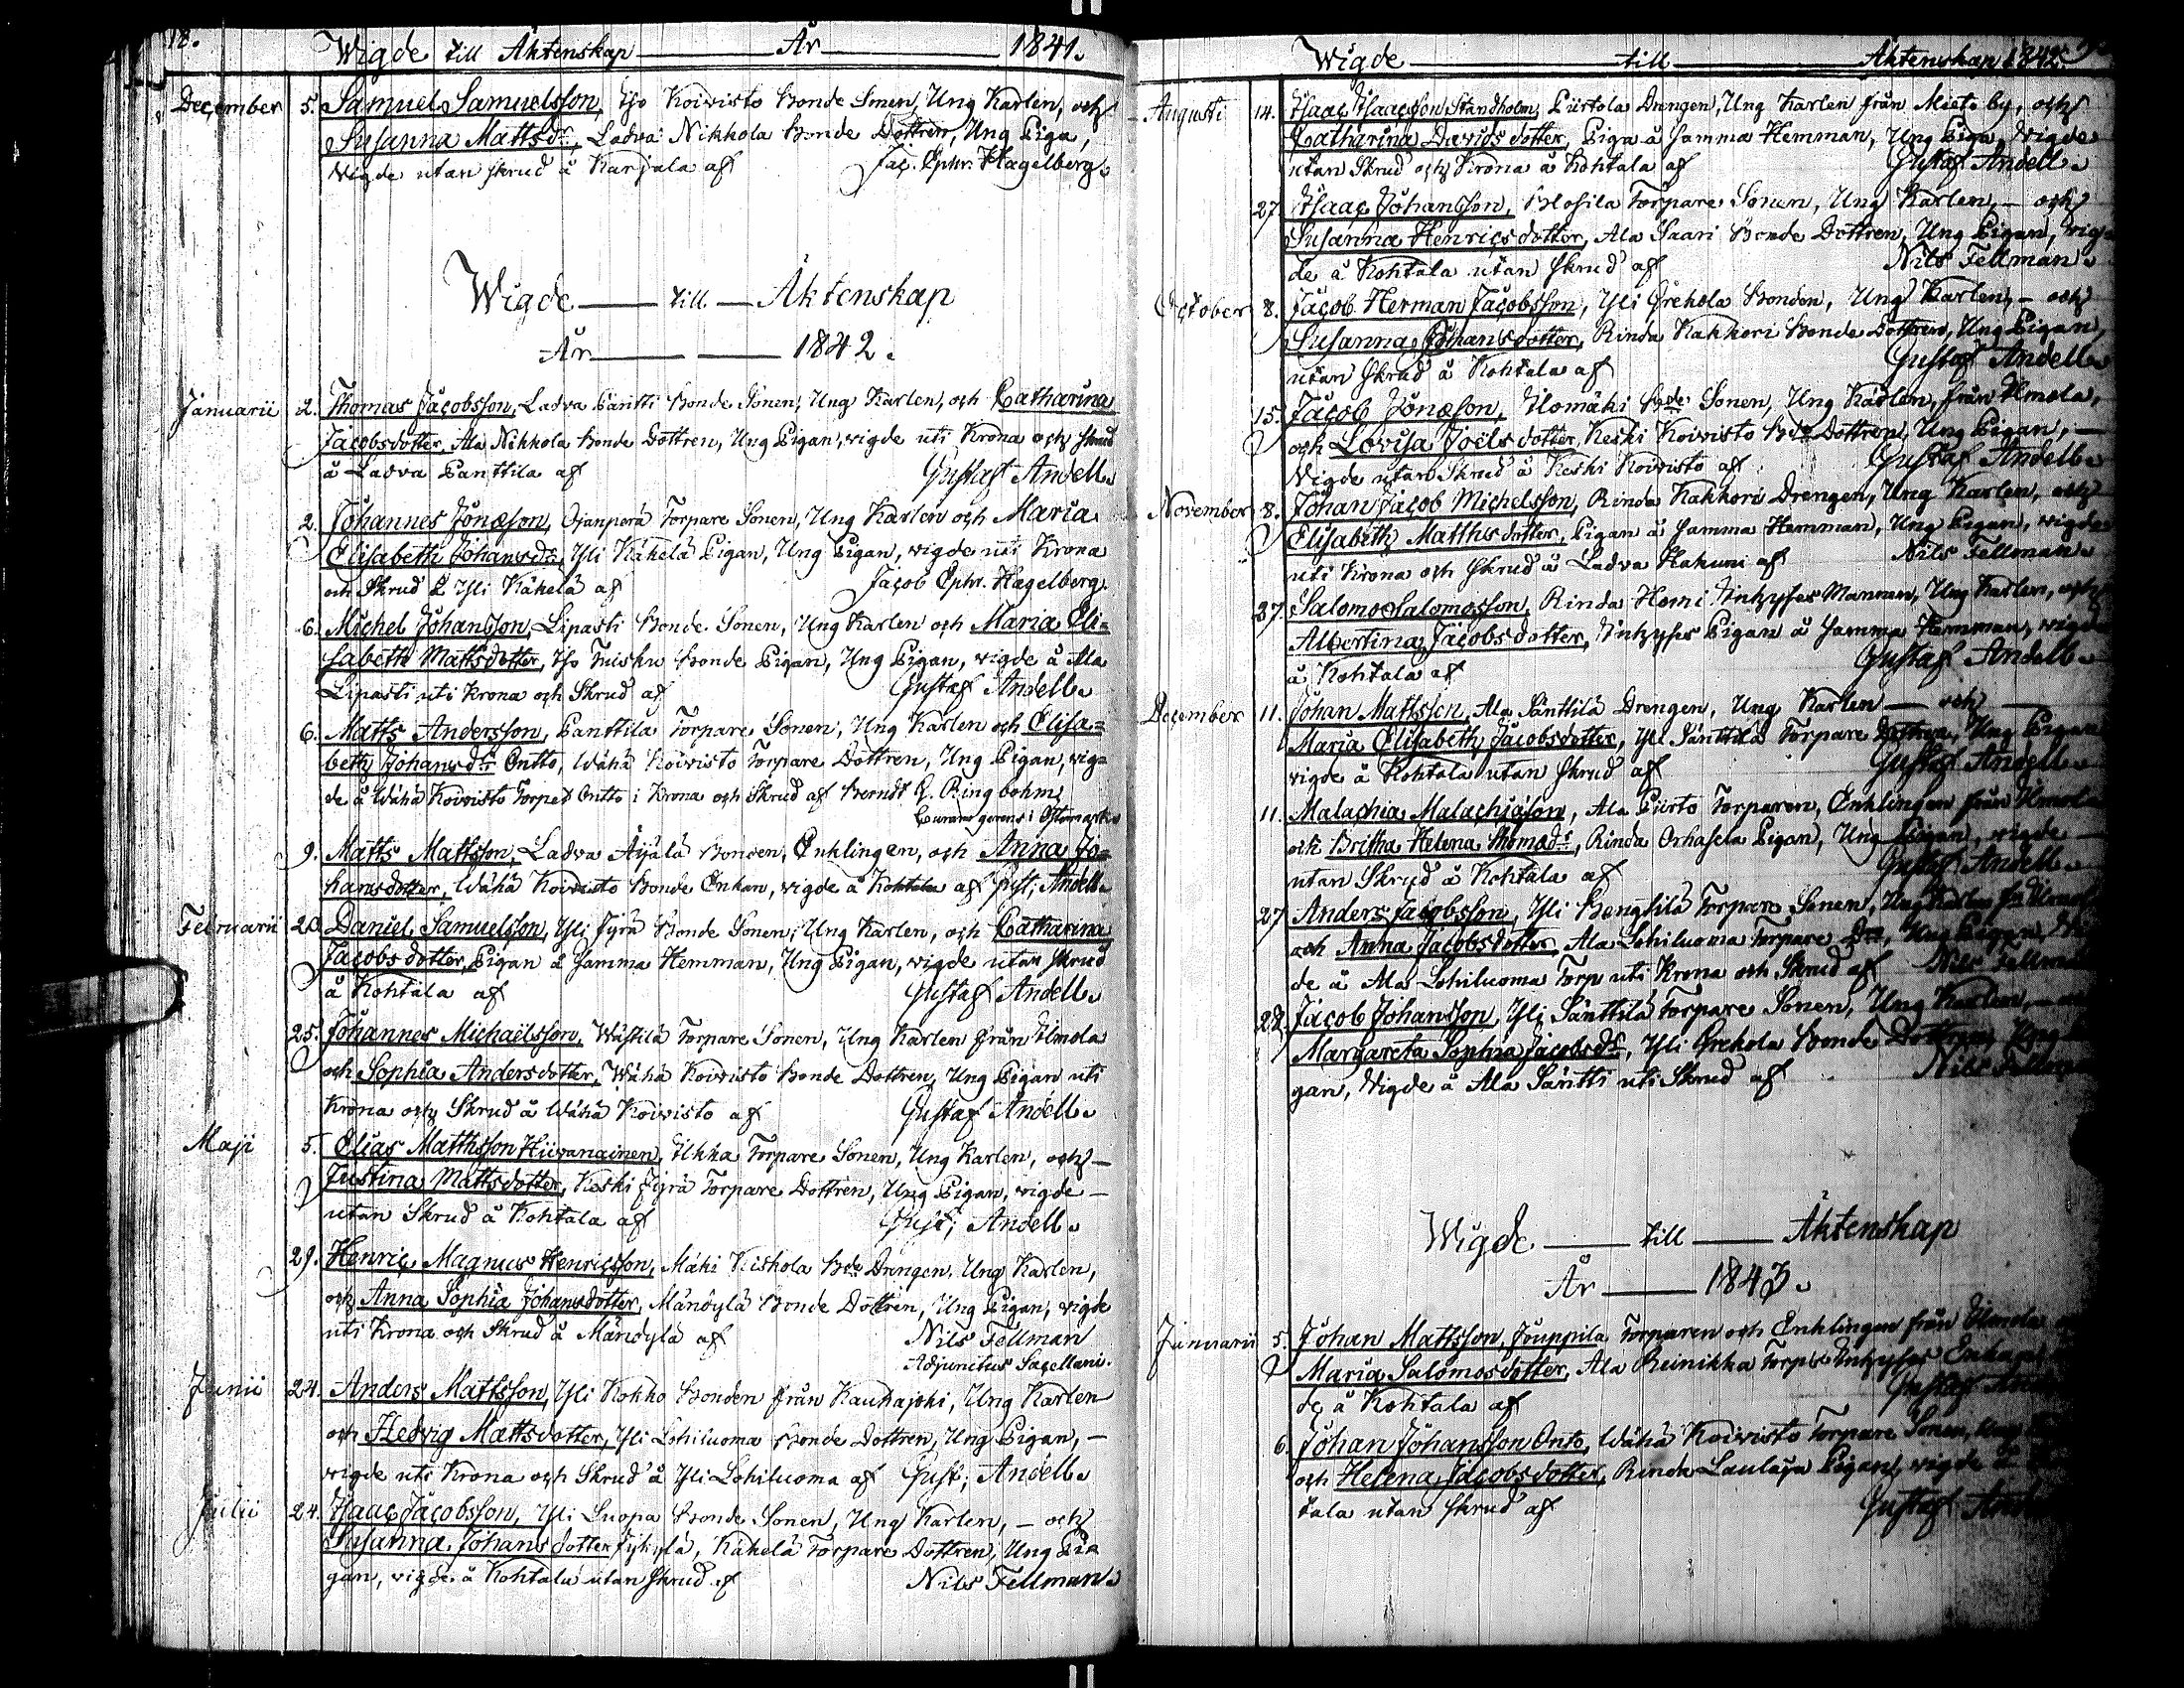 18.
Wigde till Äktenskap År 1841.
December 5. Samuel Samuelsson, Iso Koivisto Bonde Sonen, Ung Karlen, och
Susanna Mattsdr, Ladva Nikkola Bonde Dottren, Ung Piga,
Wigde utan skrud å Karjala af Jac. Ephr. Hagelberg.
Wigde till Äktenskap
År 1842.
Januarii 2. Thomas Jacobsson, Ladva Pantti Bonde Sonen, Ung Karlen, och Catharina
Jacobsdotter, Ala Nikkola Bonde Dottren, Ung Pigan, vigde uti Krona och skrud
å Ladva Panttila af Gustaf Andell.
2. Johannes Jonæson, Ojanperä Torpare Sonen, Ung Karlen och Maria
Elisabeth Johansdr, Yli Kähelä Pigan, Ung Pigan, vigde uti Krona
och Skrud å Yli Kähelä af Jacob Ephr. Hagelberg.
6. Michel Johansson, Lipasti Bonde Sonen, Ung Karlen och Maria Eli=
sabeth Mattsdotter, Iso Tuisku Bonde Pigan, Ung Pigan, vigde å Ala
Lipasti uti Krona och Skrud af Gustaf Andell.
6. Matts Andersson, Panttila Torpare Sonen, Ung Karlen och Elisa=
beth Johansdr Ontto, Wähä Koivisto Torpare Dottren, Ung Pigan, vig=
de å Wähä Koivisto Torpet Ontto i Krona och Skrud af Berndt G. Ringbohm,
Curam gerens i Östermark
9. Matts Mattsson, Ladva Äijälä Bonden, Enklingen, och Anna Jo=
hansdotter, Wähä Koivisto Bonde Enkan, vigde å Kohtala af Gust; Andell.
Februarii 20. Daniel Samuelsson, Yli Jyrä Bonde Sonen, Ung Karlen, och Catharina
Jacobs dotter, Pigan å samma Hemman, Ung Pigan, vigde utan skrud
å Kohtala af Gustaf Andell.
25. Johannes Michaelsson, Wästilä Torpare Sonen, Ung Karlen från Ilmola
och Sophia Andersdotter, Wähä Koivisto Bonde Dottren, Ung Pigan uti
Krona och Skrud å Wähä Koivisto af Gustaf Andell.
Maji 5. Elias Matthsson Hiivanainen, Ukka Torpare Sonen, Ung Karlen, och
Justina Mattsdotter, Keski Jyrä Torpare Dottren, Ung Pigan, vigde
utan Skrud å Kohtala af Gust; Andell.
29. Henric Magnus Henricsson, Mäki Kiskola Bde Drengen, Ung Karlen,
och Anna Sophia Johansdotter, Mändylä Bonde Dottren, Ung Pigan, vigde
uti Krona och Skrud å Mändylä af Nils Fellman
Adjunctus Sacellani.
Junii 24. Anders Mattsson, Yli Kokko Bonden från Kauhajoki, Ung Karlen
och Hedvig Mattsdotter, Yli Lohiluoma Bonde Dottren, Ung Pigan,
vigde uti Krona och Skrud å Yli Lohiluoma af Gust; Andell.
Julii 24. Isaac Jacobsson, Yli Luopa Bonde Sonen, Ung Karlen, och
Susanna Johans dotter Jykylä, Kähelä Torpare Dottren, Ung Pi=
gan, vigde å Kohtala utan skrud af Nils Fellman.
Wigde till Äktenskap 1842.
Augusti 14. Isaac Isaacsson Strandholm, Piirtola Drengen, Ung Karlen från Mieto by, och
Catharina Davids dotter, Piga å samma Hemman, Ung Piga, Wigde
utan Skrud och Krona å Kohtala af Gustaf Andell.
27 Isaac Johansson, Torpare Sonen, Ung Karlen, och
Susanna Henrics dotter, Ala Saari Bonde Dottren, Ung Pigan, vig=
de å Kohtala utan skrud af Nils Fellman.
October 8. Jacob Herman Jacobsson, Yli Orehola Bonden, Ung Karlen, och
Susanna Johansdotter, Rinda Kakkori Bonde Dottren, Ung Pigan,
utan Skrud å Kohtala af Gustaf Andell.
15. Jacob Jonæson, Ilomäki Bde Sonen, Ung Karlen, från Ilmola,
och Lovisa Joëls dotter, Keski Koivisto Bde Dottren, Ung Pigan,
Wigde utan Skrud å Keski Koivisto af Gustaf Andell.
November 8. Johan Jacob Michelsson, Rinda Kakkori Drengen, Ung Karlen, och
Elisabeth Matths dotter, Pigan å samma Hemman, Ung Pigan, vigde
uti Krona och Skrud å Ladva Kakuri af Nils Fellman.
27. Salomo Salomosson, Rinda Homi Inhyses Mannen, Ung Karlen, och
Albertina Jacobs dotter, Inhyses Pigan å samma Hemman, vigde
å Kohtala af Gustaf Andell.
December 11. Johan Mattsson, Ala Sänttilä Drengen, Ung Karlen och
Maria Elisabeth Jacobsdotter, Yli Sänttilä Torpare Dottren, Ung Pigan
vigde å Kohtala utan skrud af Gustaf Andell.
11. Malachia Malachiæson, Ala Piirto Torparen, Enklingen från Ilmola
och Britha Helena Thomædr, Rinda Orhasela Pigan, Ung Pigan, vigde
utan Skrud å Kohtala af Gustaf Andell.
27 Anders Jacobsson, Yli Bengtilä Torpare Sonen, Ung Karlen fr Ilmola
och Anna Jacobsdotter, Ala Lohiluoma Torpare Dr, Ung Pigan
de å Ala Lohiluoma Torp uti Krona och Skrud af Nils Fellman
28. Jacob Johansson, Yli Sänttilä Torpare Sonen, Ung Karlen,
Margareta Sophia Jacobsdr, Yli Orehola Bonde Dottren, Ung
gan, Wigde å Ala Säntti uti Skrud af Nils Fellman
Wigde till Äktenskap
År 1843.
Januarii 5. Johan Mattsson, Jouppila Torparen och Enklingen från Ilmola
Maria Salomosdotter, Ala Reinikka Torps Inhyses Enkan
de å Kohtala af Gustaf
6. Johan Johansson Onto, Wähä Koivisto Torpare Sonen, Ung
och Helena Jacobs dotter, Rinda Laulaja Pigan, vigde å
tala utan skrud af Gustaf